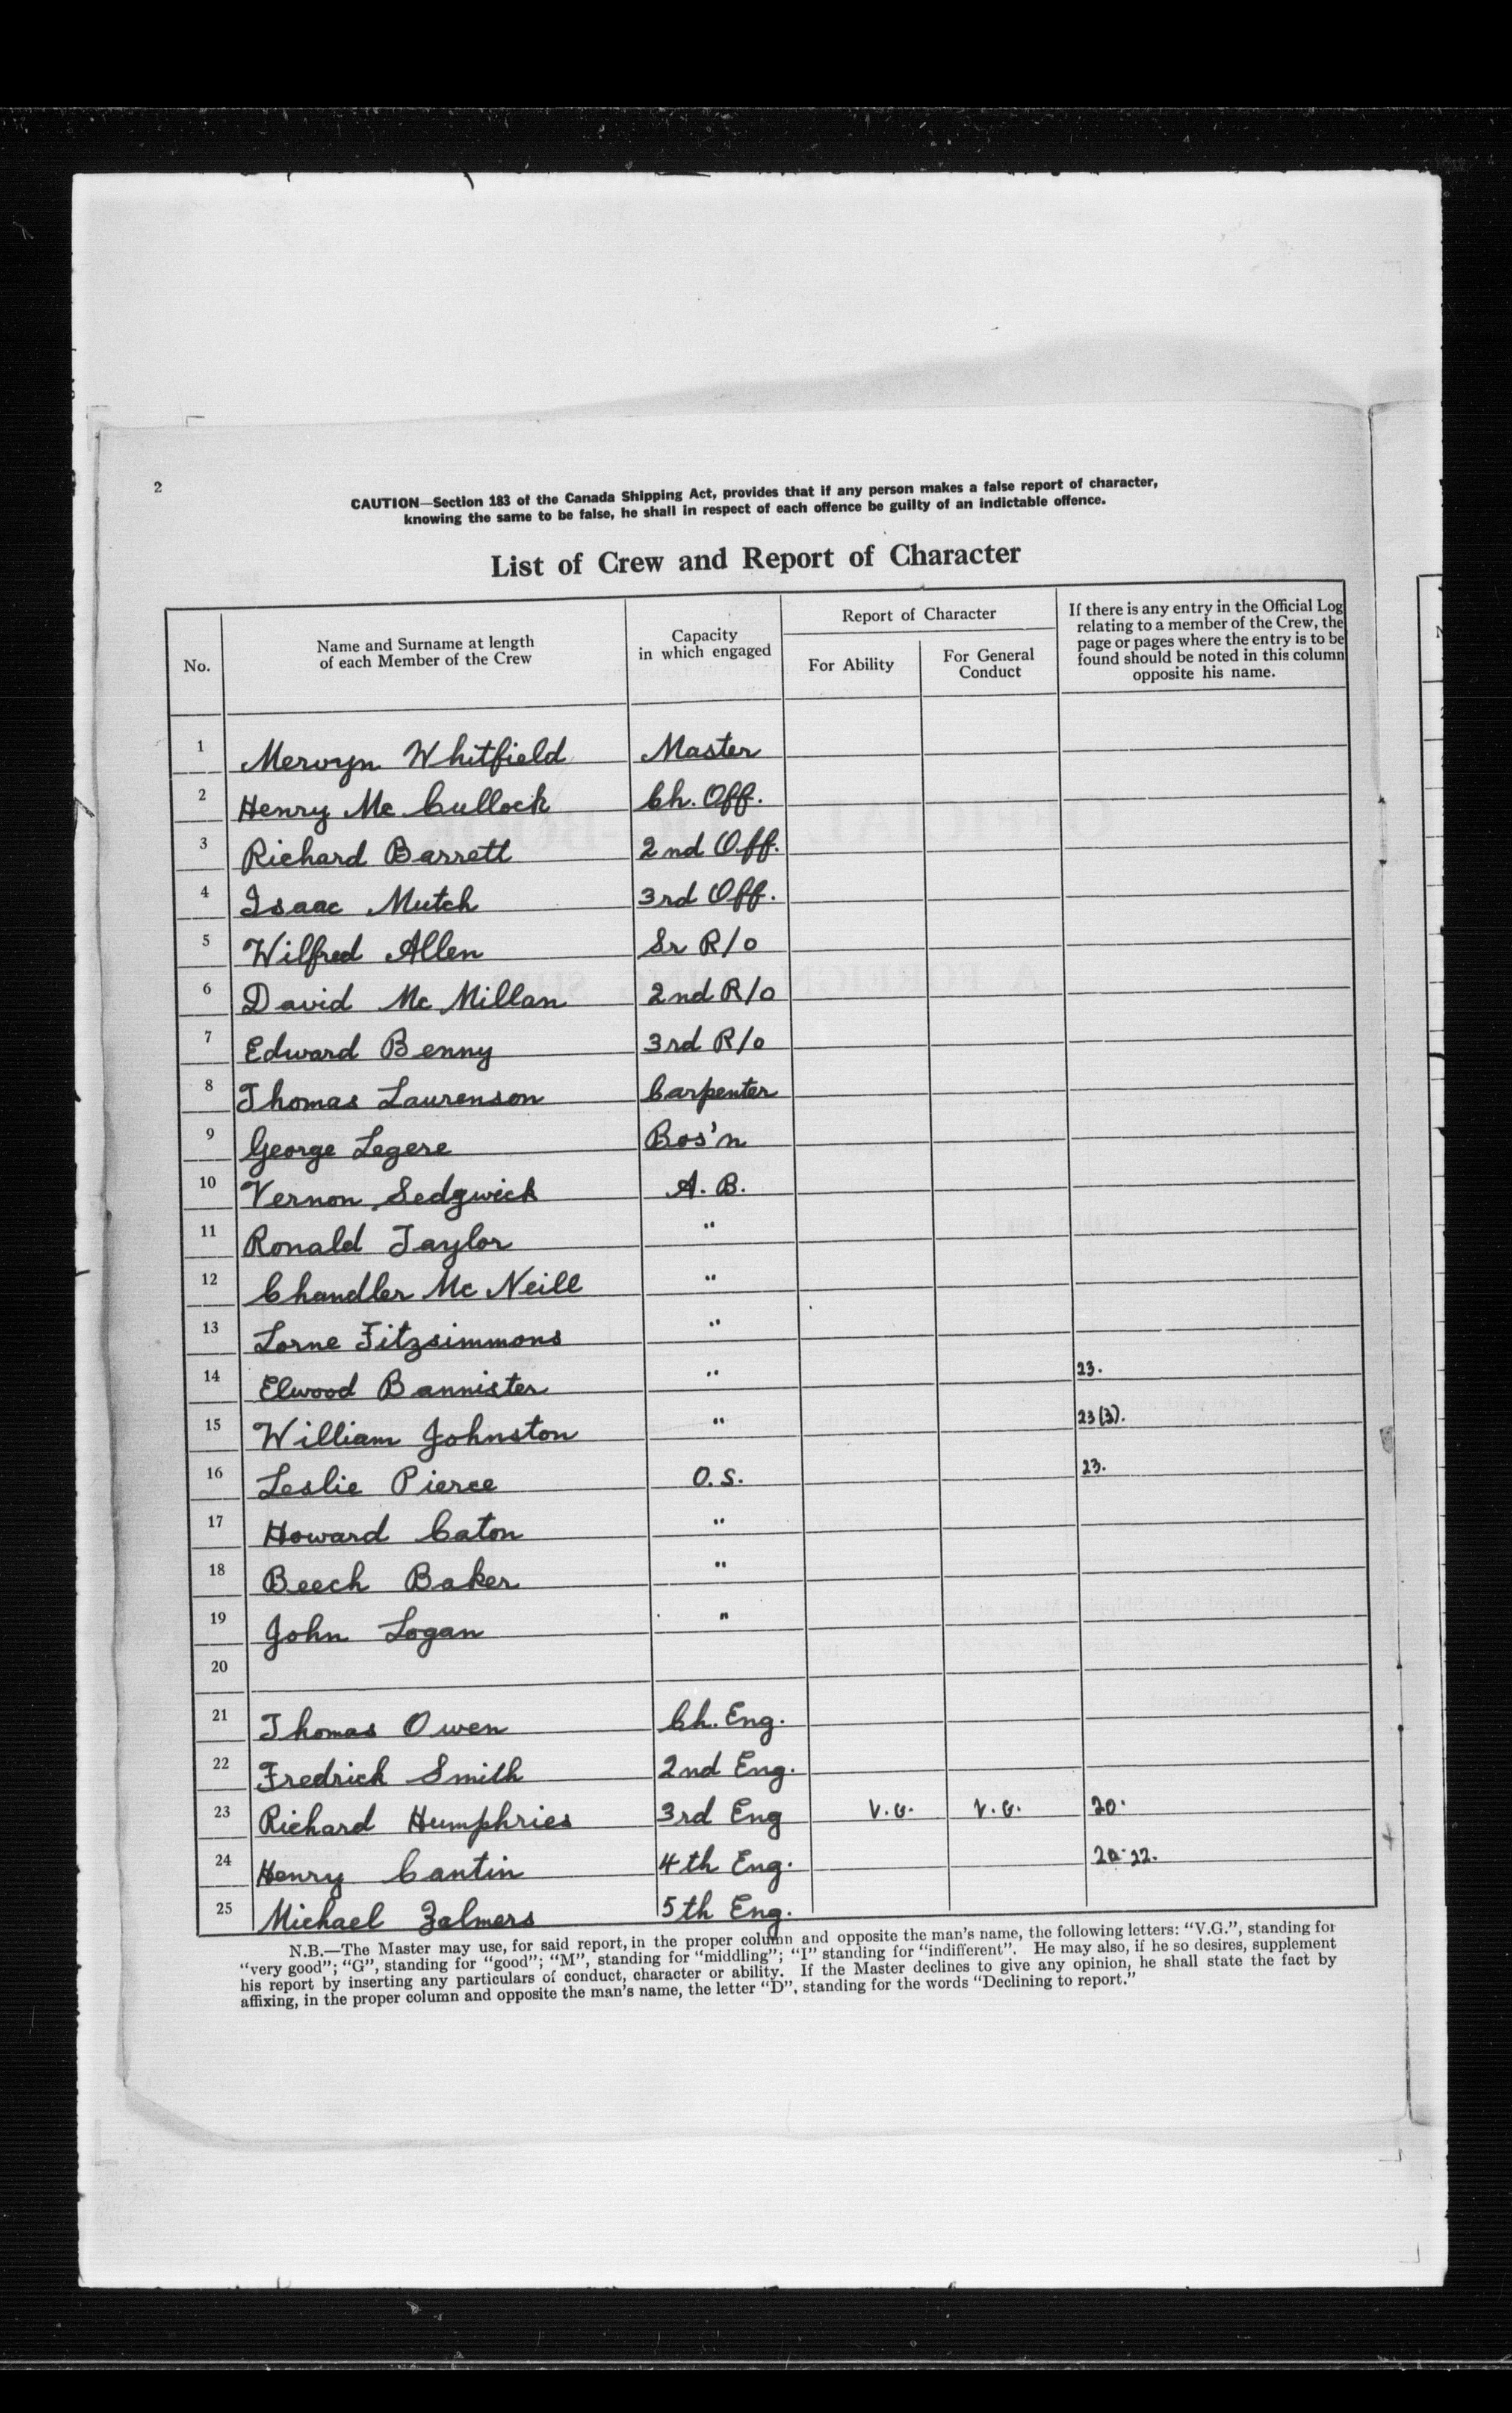 2
CAUTION—Section 183 of the Canada Shipping Act, provides that if any person makes a false report of character,
knowing the same to be false, he shall in respect of each offence be guilty of an indictable offence.
List of Crew and Report of Character
No.
Name and Surname at length
of each Member of the Crew
Capacity
in which engaged
Report of Character
For Ability
For General
Conduct
If there is any entry in the Official Log
relating to a member of the Crew, the
page or pages where the entry is to be
found should be noted in this column
opposite his name.
1 Mervyn Whitfield Master
2 Henry Mc Cullock Ch. Off.
3 Richard Barrett 2nd Off.
4 Isaac Mutch 3rd Off.
5 Wilfred Allen Sr R/o
6 David Mc Millan 2nd R/o
7 Edward Benny 3rd R/o
8 Thomas Laurenson Carpenter
9 George Legere Bos'n
10 Vernon Sedgwick A. B.
11 Ronald Taylor "
12 Chandler Mc Neill "
13 Lorne Fitzsimmons "
14 Elwood Bannister " 23.
15 William Johnston " 23(3).
16 Leslie Pierce O.S. 23.
17 Howard Caton "
18 Beech Baker "
19 John Logan "
20
21 Thomas Owen Ch. Eng.
22 Fredrick Smith 2nd Eng.
23 Richard Humphries 3rd Eng V.G. V.G. 20.
24 Henry Cantin 4th Eng. 20.22.
25 Michael Zalmers 5th Eng.
N.B.—The Master may use, for said report, in the proper column and opposite the man's name, the following letters: "V.G.", standing for
"very good"; "G", standing for "good"; "M", standing for "middling"; "I" standing for "indifferent". He may also, if he so desires, supplement
his report by inserting any particulars of conduct, character or ability. If the Master declines to give any opinion, he shall state the fact by
affixing, in the proper column and opposite the man's name, the letter "D", standing for the words "Declining to report."